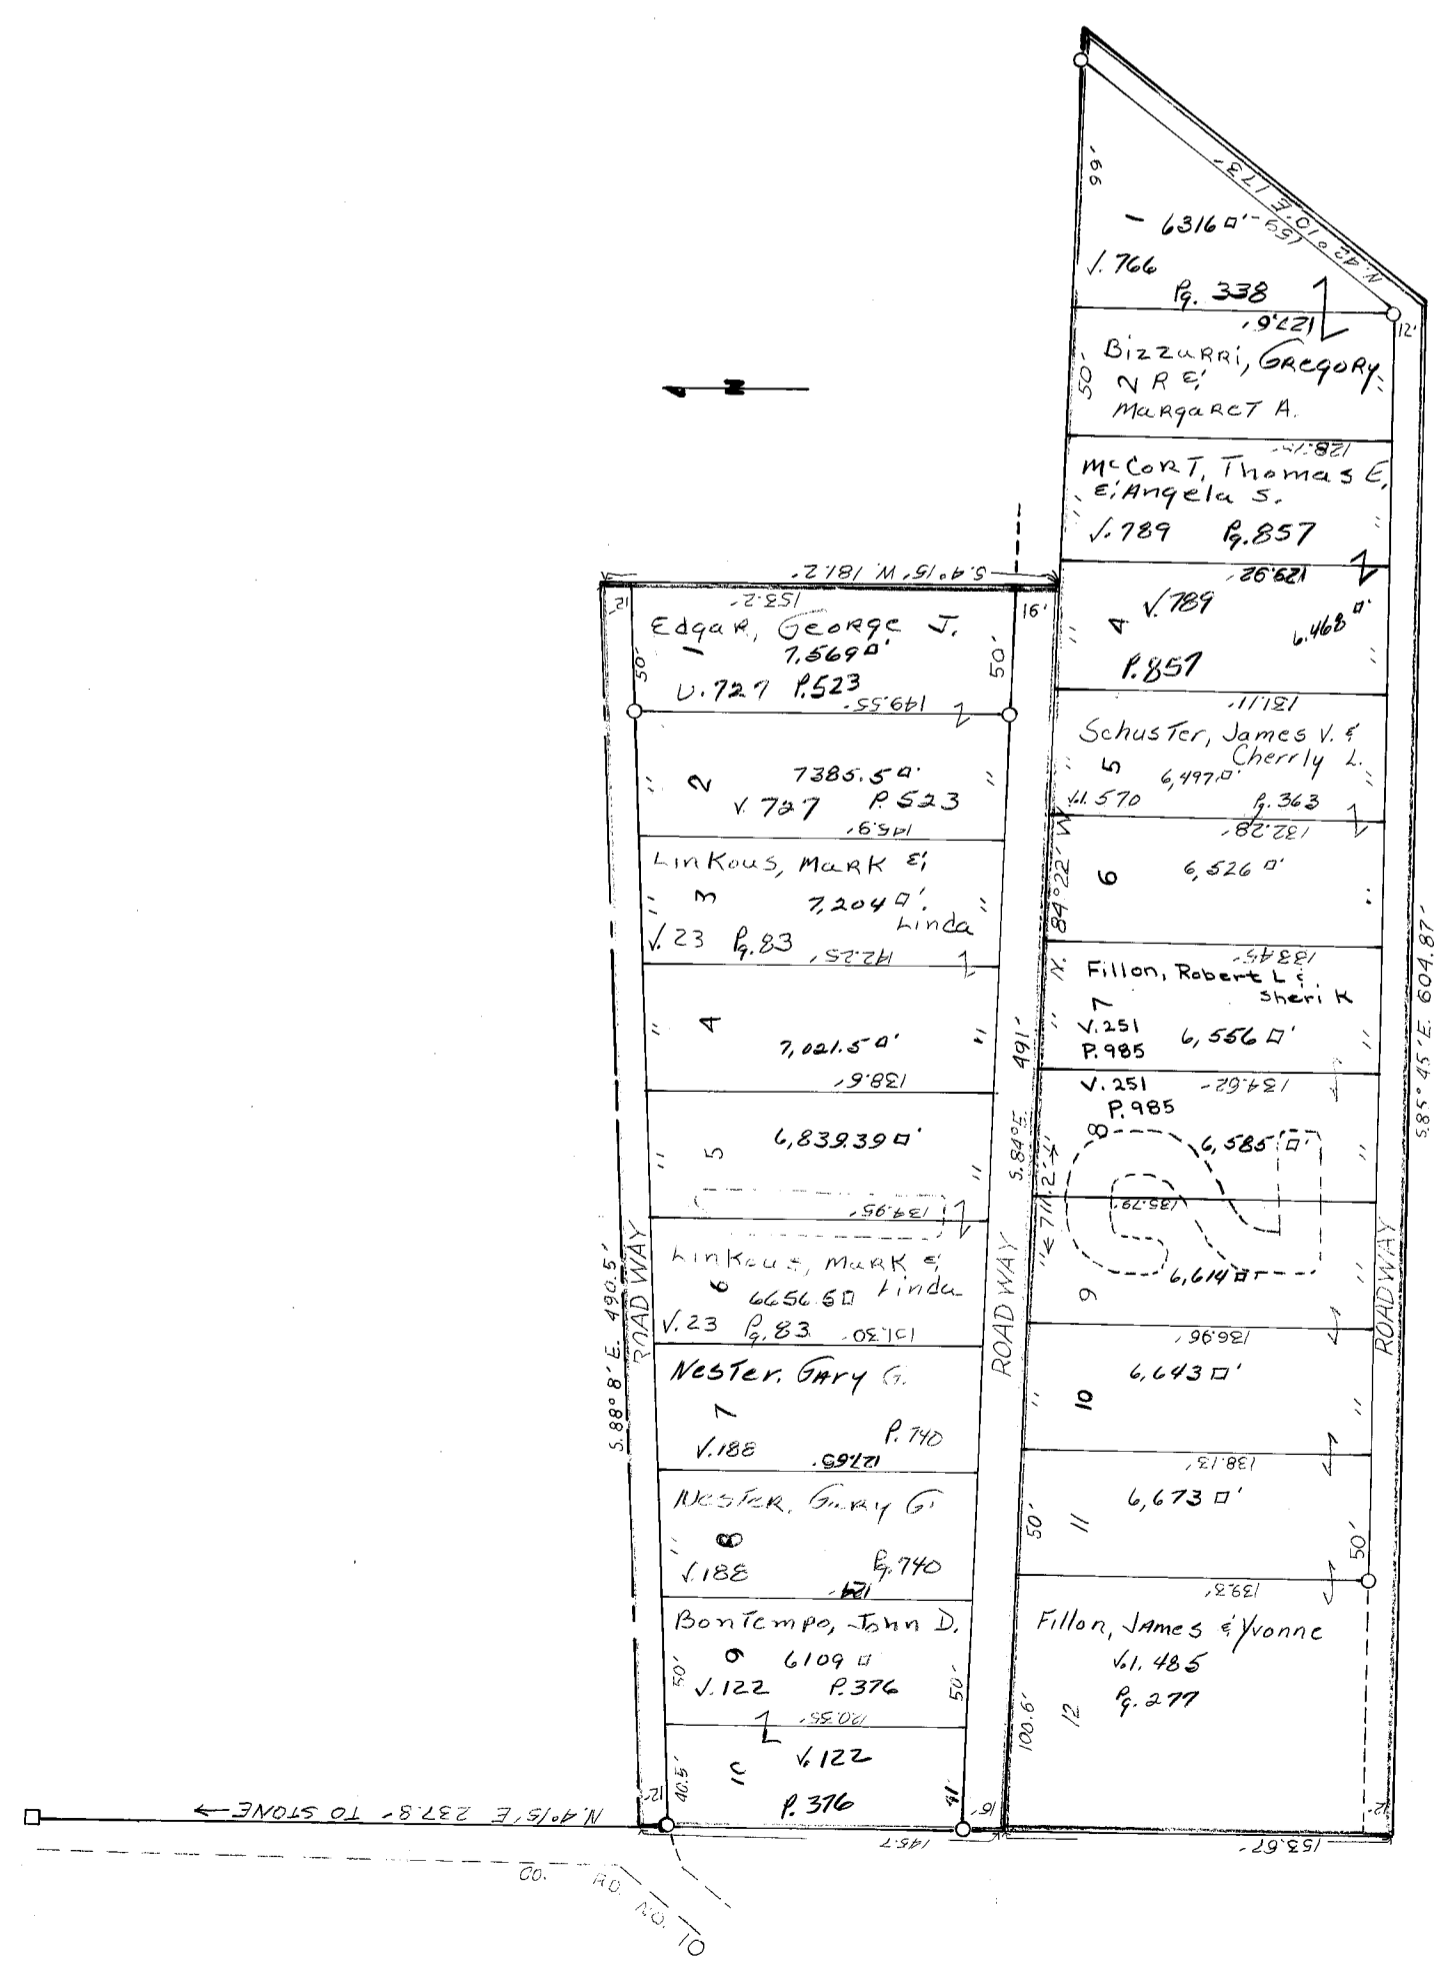 99'
1
6316 □'
159'
N. 42° 10' E 173'
V. 766
Pg. 338
127.6'
12'
50'
Bizzurri, Gregory
2 R &
Margaret A.
128.75'
McCort, Thomas E,
& Angela S.
"
"
V. 789 Pg. 857
129.92'
V. 789
4
6,468 □'
"
"
P. 857
131.11'
Schuster, James V. &
Cherrly L.
5
6,497 □'
"
"
Vol. 570 Pg. 363
132.28'
N. 84° 22' W
6
6,526 □'
"
133.45'
Fillon, Robert L &
Sheri K
7
"
"
V. 251
P. 985
6,556 □'
134.62'
V. 251
P. 985
8
6,585 □'
"
711.2'
135.79'
9
6,614 □'
"
"
136.96'
10
6,643 □'
"
"
138.13'
11
6,673 □'
50'
50'
139.3'
Fillon, James & Yvonne
Vol. 485
Pg. 277
12
100.6'
12'
153.67'
ROADWAY
S. 85° 45' E. 604.87'
N
S. 4° 15' W. 181.2'
12'
153.2'
16'
Edgar, George J.
1
7,569 □'
50'
50'
V. 727 P. 523
149.55'
2
7385.5 □'
"
"
V. 727 P. 523
145.9'
Linkous, Mark &
Linda
3
7,204 □'
"
"
V. 23 Pg. 83
142.25'
4
7,021.5 □'
"
"
138.6'
5
6,839.39 □'
"
"
134.95'
Linkous, Mark &
Linda
6
6656.5 □
V. 23 Pg. 83
131.30
Nester, Gary G.
7
V. 188 P. 740
127.65'
Nester, Gary G
8
"
V. 188 Pg. 740
124'
Bontempo, John D.
9
6109 □
50'
50'
V. 122 P. 376
120.35'
10
V. 122
P. 376
40.5'
41'
12'
16'
145.7
ROADWAY
S. 88° 8' E. 490.5'
ROADWAY
S. 84° E. 491'
N. 4° 15' E 237.8' TO STONE
CO. RD. NO. 10